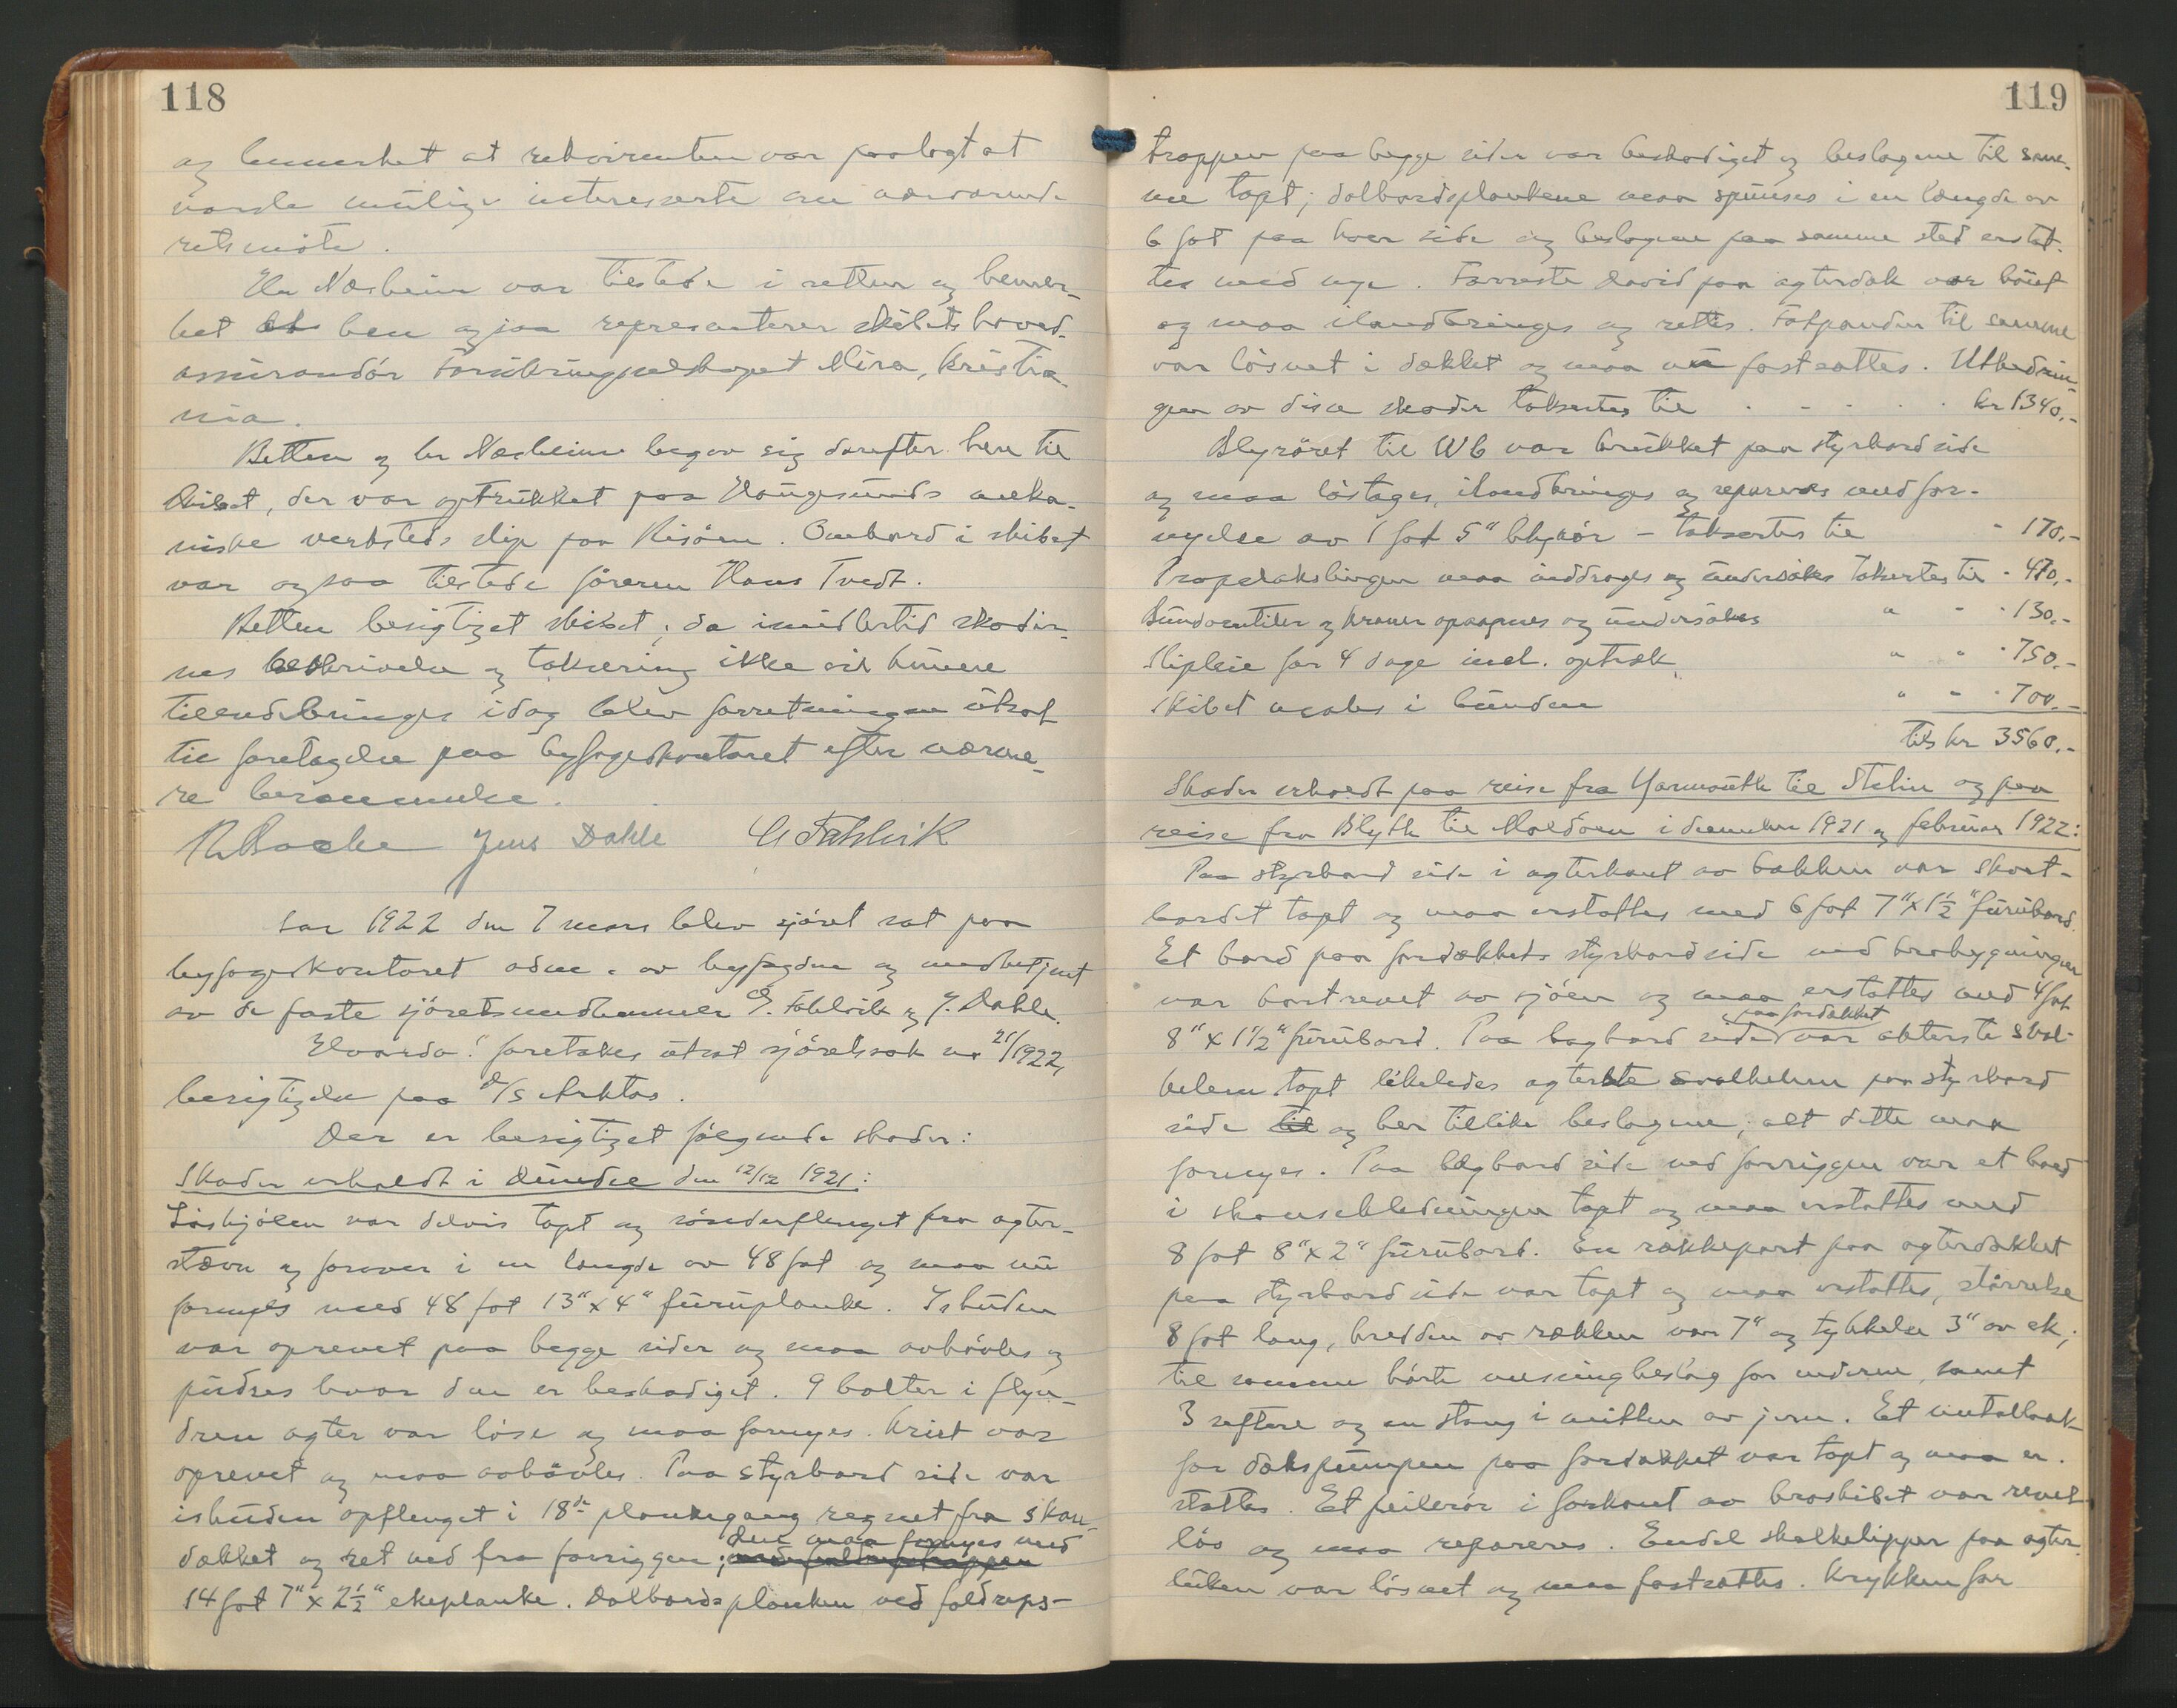 118
og bemerket at rekvirenten var paalagt at
varsle mulige interesserte om nærværende
retsmøte.
Hr Næsheim var tilstede i retten og bemer-
ket at han ogsaa representerer skibets hoved-
assurandør Forsikringsselskapet Mira, Kristia-
nia.
Retten og hr Næsheim begav sig derefter hen til
skibet, der var optrukket paa Haugesunds meka-
niske verksteds slip paa Risøen. Ombord i skibet
var ogsaa tilstede føreren Hans Tvedt.
Retten besigtiget skibet; da imidlertid skader-
nes beskrivelse og taksering ikke vil kunne
tilendebringes idag blev forretningen utsat
til foretagelse paa byfogedkontoret efter nærme-
re berammelse.
Jens Dahle
Aar 1922 den 7 mars blev sjøret sat paa
byfogedkontoret adm. av byfogden og medbetjent
av de faste sjøretsmedlemmer G. Fahlvik og J. Dahle.
Hvorda: foretokes utsat sjøretssak nr 21/1922,
besigtigelse paa d/s Arktos.
Der er besigtiget følgende skader:
Skader erholdt i Dundee den 12/12 1921:
Løskjølen var delvis tapt og sønderflenget fra agter-
stævn og forover i en længde av 48 fot og maa nu
fornyes med 48 fot 13" x 4" furuplanke. Ishuden
var oprevet paa begge sider og maa avhøvles og
pudses hvor den er beskadiget. 9 bolter i flyn-
dren agter var løse og maa fornyes. Kriet var
oprevet og maa avhøvles. Paa styrbord side var
ishuden opflenget i 18de plankegang regnet fra skan-
dækket og ret ned fra forriggen; den maa fornyes med
14 fot 7" x 2½" ekeplanke. Dolbordsplanken ved faldreps-
119
trappen paa begge sider var beskadiget og beslagene til sam-
me tapt; dolbordsplankene maa spunses i en længde av
6 fot paa hver side og beslagene paa samme sted erstat-
tes med nye. Forreste david paa agterdæk var bøiet
og maa ilandbringes og rettes. Fotpanden til samme
var løsnet i dækket og maa nu fastsættes. Utbedrin-
gen av disse skader takseres til . - - . . kr 1340.-
Blyrøret til WC var brukket paa styrbord side
og maa løstages, ilandbringes og repareres med for-
nyelse av 1 fot 5" blyrør - takseres til - 170.-
Propelakslingen maa inddrages og undersøkes takseres til - 470.-
Bundventiler og kraner opaapnes og undersøkes " - - 130.-
Slipleie for 4 dage incl. optræk " " - 750.-
Skibet males i bunden " - - 700.-
tils kr 3560.-
Skader erholdt paa reise fra Yarmouth til Stetin og paa
reise fra Blyth til Moldøen i december 1921 og februar 1922:
Paa styrbord side i agterkant av bakken var skvæt-
bordet tapt og maa erstattes med 6 fot 7" x 1½" furubord.
Et bord paa fordækkets styrbord side ved brobygningen
var bortrevet av sjøen og maa erstattes med 4 fot
8" x 1½" furubord. Paa bagbord side paa fordækket var akterste skval-
kelem tapt likeledes agterste svalkelem paa styrbord
side til og her tillike beslagene; alt dette maa
fornyes. Paa bagbord side ved forriggen var et bord
i skanseklædningen tapt og maa erstattes med
8 fot 8" x 2" furubord. En rækkeport paa agterdækket
paa styrbord side var tapt og maa erstattes, størrelse
8 fot lang, bredden av rækken var 7" og tykkelse 3" av ek;
til samme hørte messingbeslag for enderne, samt
3 støtter og en stang i midten av jern. Et metallok
for dækspumpen paa fordækket var tapt og maa er-
stattes. Et peilerør i forkant av broskibet var revet
løs og maa repareres. Endel skalkeklipper paa agter-
luken var løsnet og maa fastsættes. Krykken for